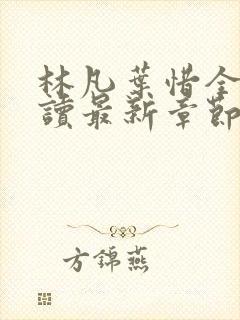 林凡葉惜全
讀最新章節
方錦燕